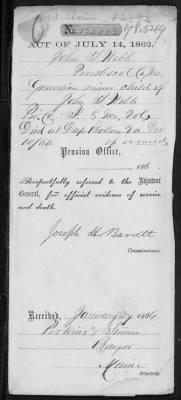 No. 120003
ACT OF JULY 14, 1862.
John S Webb
Penobscot Co. Me.
Guardian minor child of
John Webb
Pvt. C. 8 Me. Vols
Died at Dep Bottom Va Dec
10/64 of wounds
Pension Office,
186
Respectfully referred to the Adjutant
General, for official evidence of service
and death.
Joseph H Barrett
Commissioner.
Received, January 27, 1866.
Perkins &
Bangor
Maine
Attorney.